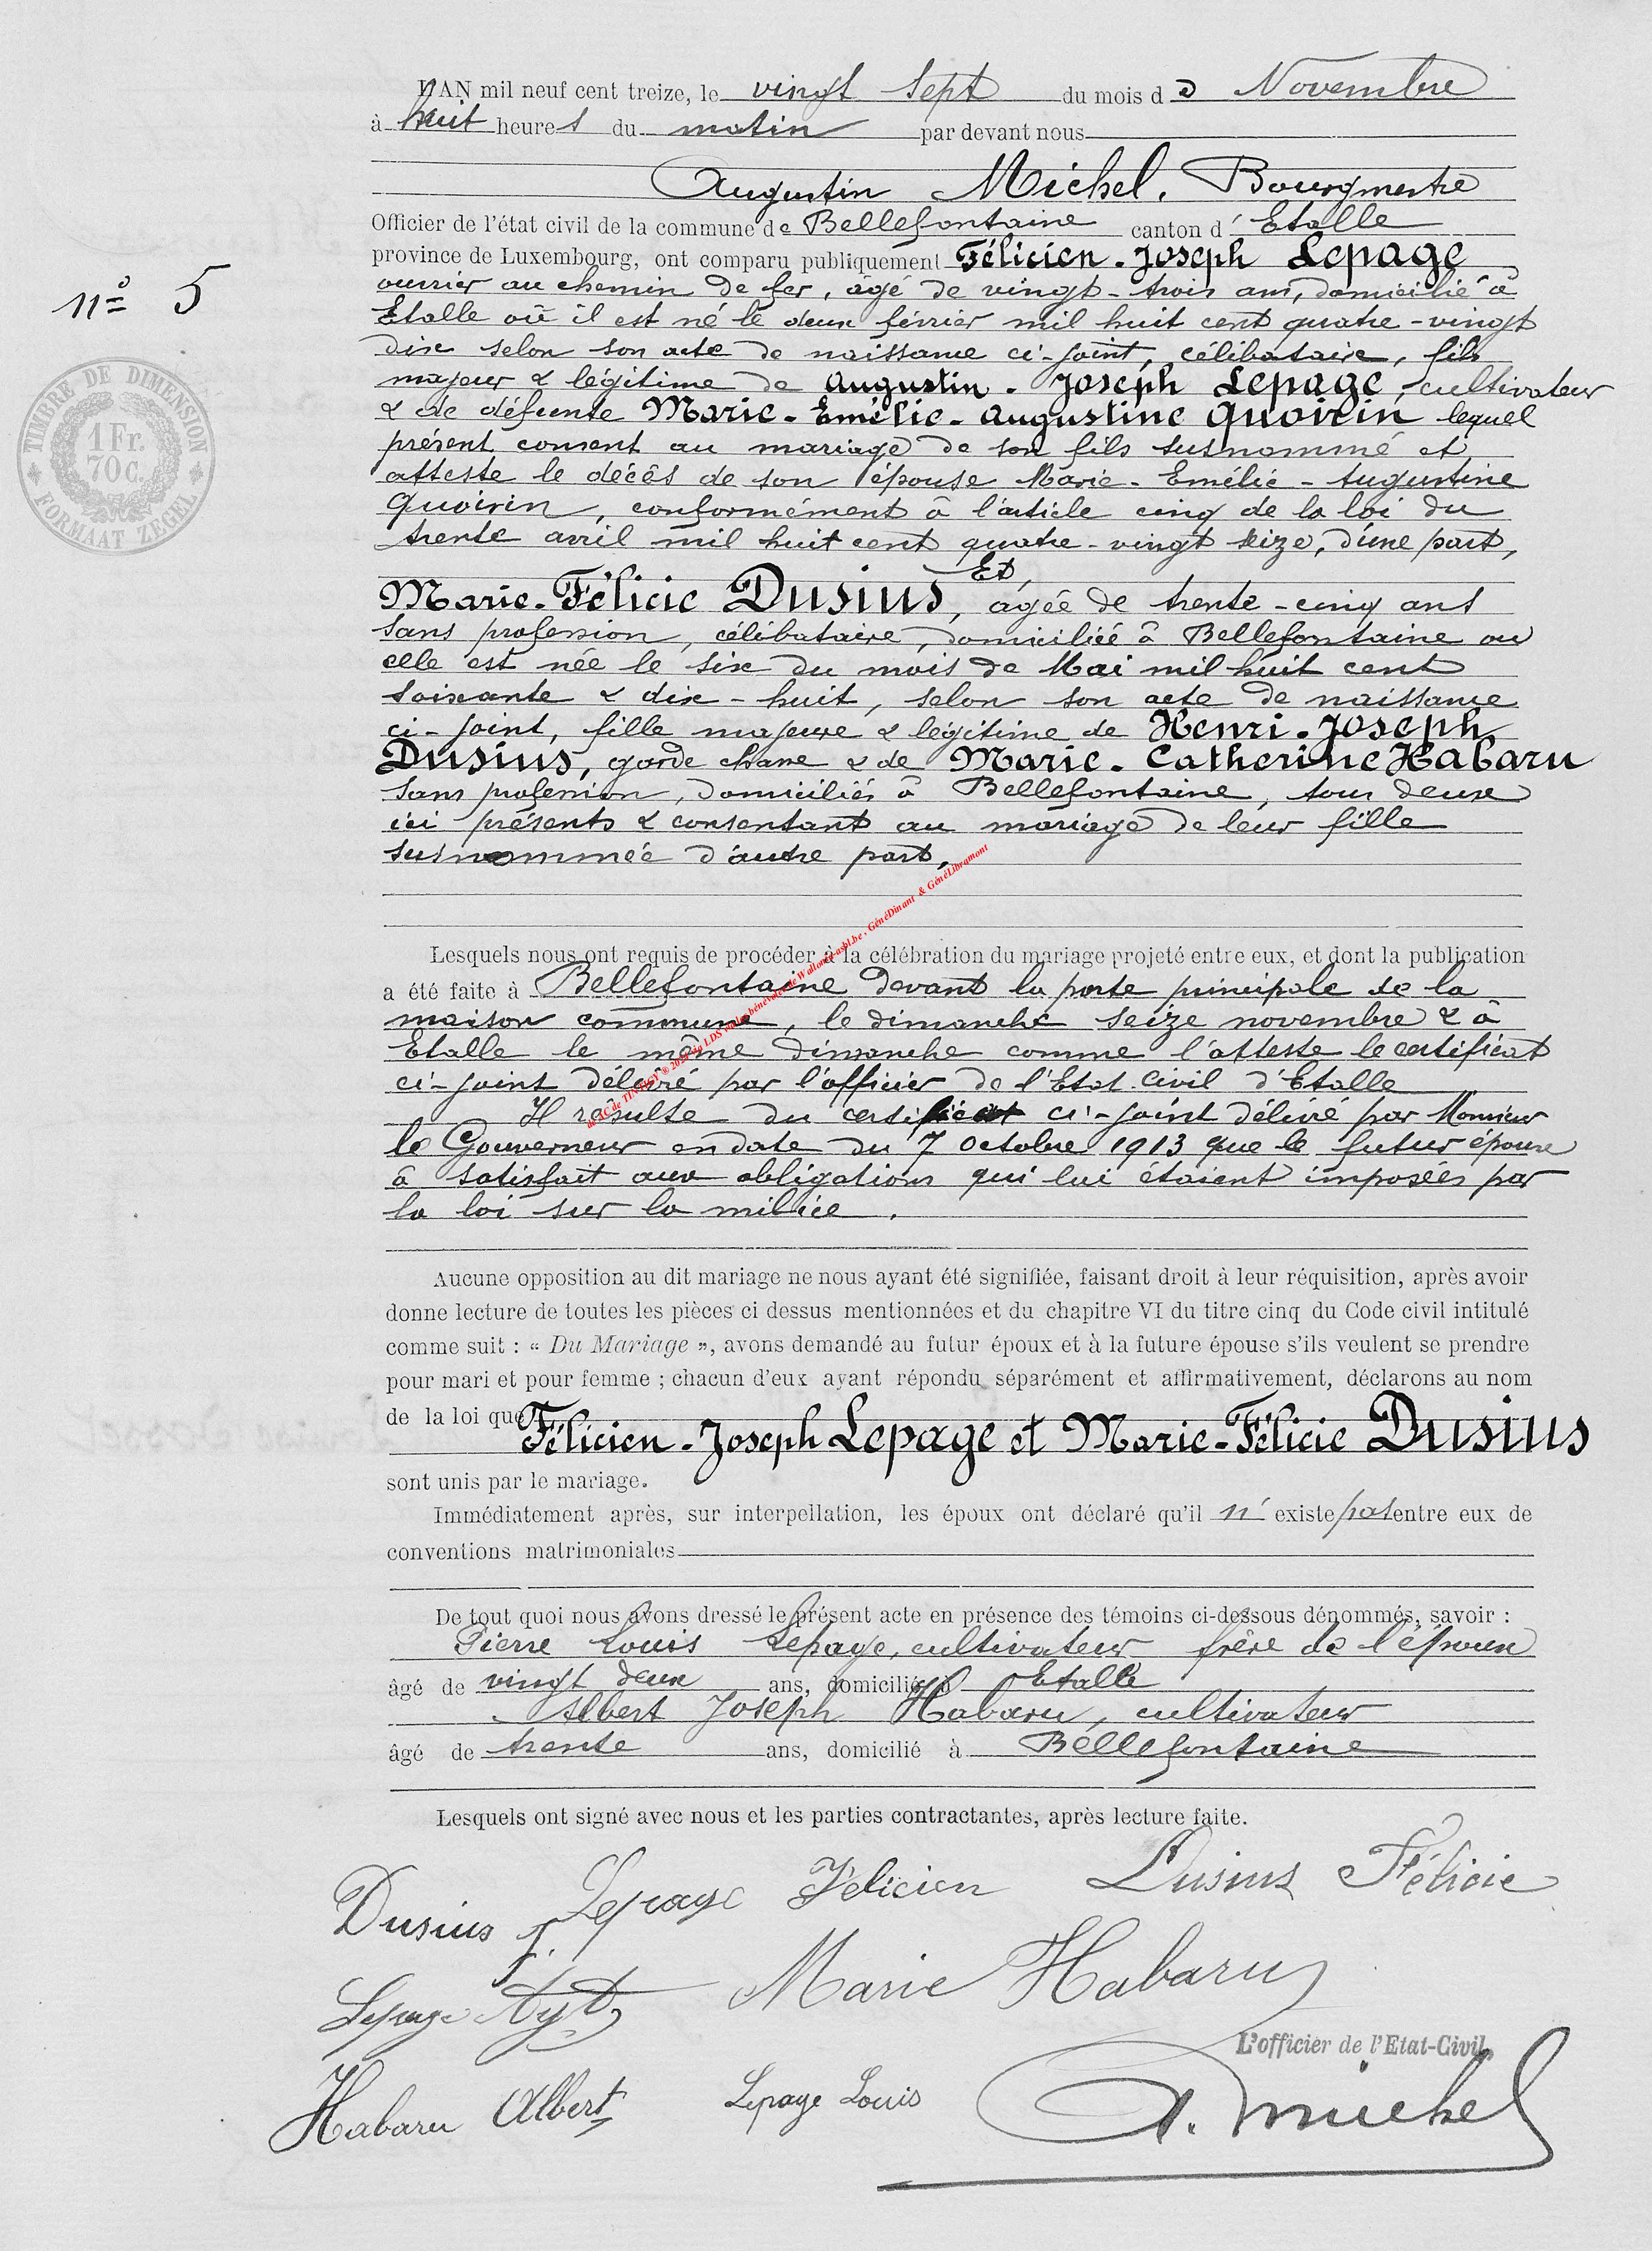 L'AN mil neuf cent treize, le vingt sept du mois de Novembre
à huit heures du matin par devant nous
Augustin Michel, Bourgmestre
Officier de l'état civil de la commune de Bellefontaine canton d' Etalle
province de Luxembourg, ont comparu publiquement Félicien-Joseph Lepage
n° 5
ouvrier au chemin de fer, âgé de vingt-trois ans, domicilié à
Etalle où il est né le deux février mil huit cent quatre-vingt
dix selon son acte de naissance ci-joint, célibataire, fils
majeur & légitime de Augustin-Joseph Lepage, cultivateur
& de défunte Marie-Emélie-Augustine Quoirin lequel
présent consent au mariage de son fils susnommé et
atteste le décès de son épouse Marie-Emélie-Augustine
Quoirin, conformément à l'article cinq de la loi du
trente avril mil huit cent quatre-vingt seize, d'une part,
Et
Marie-Félicie Dusius, âgée de trente-cinq ans
sans profession, célibataire, domiciliée à Bellefontaine où
elle est née le six du mois de Mai mil huit cent
soixante & dix-huit, selon son acte de naissance
ci-joint, fille majeure & légitime de Henri-Joseph
Dusius, garde chasse & de Marie-Catherine Habaru
sans profession, domiciliés à Bellefontaine, tous deux
ici présents & consentant au mariage de leur fille
susnommée d'autre part,
Lesquels nous ont requis de procéder à la célébration du mariage projeté entre eux, et dont la publication
a été faite à Bellefontaine devant la porte principale de la
maison commune, le dimanche seize novembre & à
Etalle le même dimanche comme l'atteste le certificat
ci-joint délivré par l'officier de l'Etat Civil d'Etalle
Il résulte du certificat ci-joint délivré par Monsieur
le Gouverneur en date du 7 octobre 1913 que le futur époux
a satisfait aux obligations qui lui étaient imposées par
la loi sur la milice.
Aucune opposition au dit mariage ne nous ayant été signifiée, faisant droit à leur réquisition, après avoir
donne lecture de toutes les pièces ci dessus mentionnées et du chapitre VI du titre cinq du Code civil intitulé
comme suit : « Du Mariage », avons demandé au futur époux et à la future épouse s'ils veulent se prendre
pour mari et pour femme ; chacun d'eux ayant répondu séparément et affirmativement, déclarons au nom
de la loi que Félicien-Joseph Lepage et Marie-Félicie Dusius
sont unis par le mariage.
Immédiatement après, sur interpellation, les époux ont déclaré qu'il n' existe pas entre eux de
conventions matrimoniales
De tout quoi nous avons dressé le présent acte en présence des témoins ci-dessous dénommés, savoir :
Pierre Louis Lepage, cultivateur frère de l'époux
âgé de vingt deux ans, domicilié à Etalle
Albert Joseph Habaru, cultivateur
âgé de trente ans, domicilié à Bellefontaine
Lesquels ont signé avec nous et les parties contractantes, après lecture faite.
Dusius J. Lepage Félicien Dusius Félicie
Lepage Agt Marie Habaru
L'officier de l'Etat-Civil,
Habaru Albert Lepage Louis A. Michel
TIMBRE DE DIMENSION
1 Fr.
70c.
FORMAAT ZEGEL